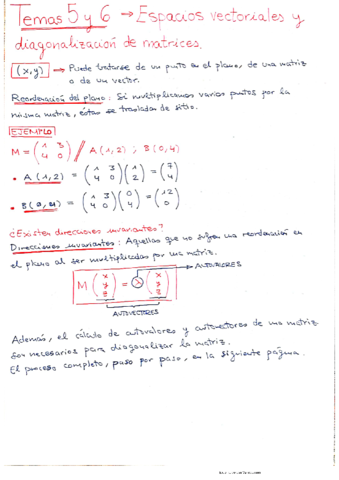 Temas 5 y 6 → Espacios vectoriales y
diagonalización de matrices.
(x,y) → Puede tratarse de un punto en el plano, de una matriz
o de un vector.
Reordenación del plano: Si multiplicamos varios puntos por la
misma matriz, éstos se trasladan de sitio.
EJEMPLO
M = (1 3 / 4 0) // A(1,2) ; B(0,4)
• A(1,2) = (1 3 / 4 0)(1 / 2) = (7 / 4)
• B(0,4) = (1 3 / 4 0)(0 / 4) = (12 / 0)
¿Existen direcciones invariantes?
Direcciones invariantes: Aquellas que no sufren una reordenación en
el plano al ser multiplicadas por una matriz.
AUTOVALORES
M (x / y / z) = (x / y / z)
AUTOVECTORES
Además, el cálculo de autovalores y autovectores de una matriz
son necesarios para diagonalizar la matriz.
El proceso completo, paso por paso, en la siguiente página.